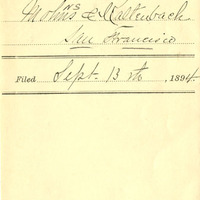 Mohns & Kaltenbach
San Francisco
Filed Sept. 13th, 1894